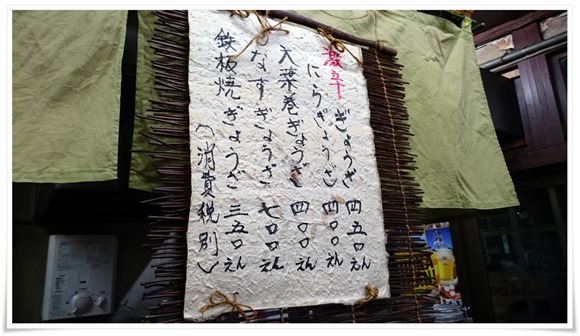 激辛ぎょうざ 四五〇えん
にらぎょうざ 四〇〇えん
大葉巻ぎょうざ 四〇〇えん
なすぎょうざ 七〇〇えん
鉄板焼ぎょうざ 三五〇えん
（消費税別）